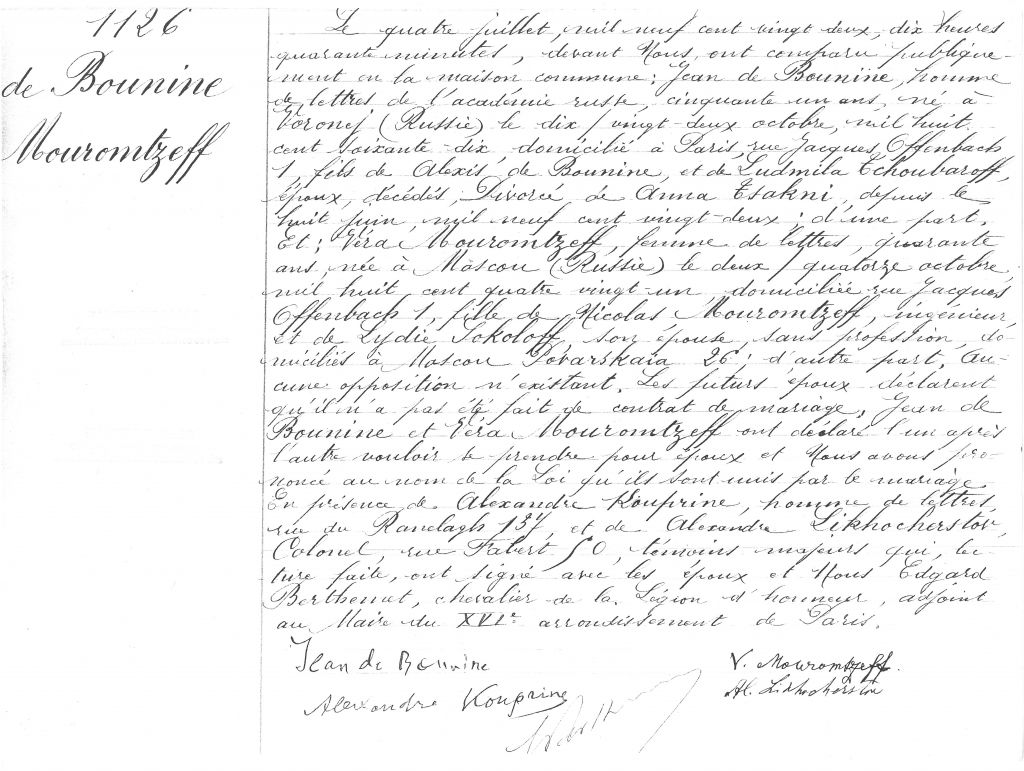 1126
de Bounine
Mouromtzeff
Le quatre juillet, mil neuf cent vingt deux, dix heures
quarante minutes, devant Nous, ont comparu publique-
ment en la maison commune: Jean de Bounine, homme
de lettres de l'académie russe, cinquante un ans, né à
Voronej (Russie) le dix/vingt-deux octobre, mil huit
cent soixante-dix, domicilié à Paris, rue Jacques Offenbach
1, fils de Alexis de Bounine, et de Ludmila Tchoubaroff,
époux, décédés, Divorcé de Anna Tsakni, depuis le
huit juin, mil neuf cent vingt-deux; d'une part.
Et: Véra Mouromtzeff, femme de lettres, quarante
ans, née à Moscou (Russie) le deux/quatorze octobre
mil huit cent quatre vingt-un, domiciliée rue Jacques
Offenbach 1, fille de Nicolas Mouromtzeff, ingénieur,
et de Lydie Sokoloff, son épouse, sans profession, do-
miciliés à Moscou Povarskaïa 26; d'autre part. Au-
cune opposition n'existant. Les futurs époux déclarent
qu'il n'a pas été fait de contrat de mariage, Jean de
Bounine et Véra Mouromtzeff ont déclaré l'un après
l'autre vouloir se prendre pour époux et Nous avons pro-
noncé au nom de la Loi qu'ils sont unis par le mariage
En présence de Alexandre Kouprine, homme de lettres,
rue du Ranelagh 137, et de Alexandre Likhocherstov,
Colonel, rue Fabert 50, témoins majeurs qui, lec-
ture faite, ont signé avec les époux et Nous Edgard
Berthemet, chevalier de la Légion d'honneur, adjoint
au Maire du XVIe arrondissement de Paris.
Jean de Bounine
V. Mouromtzeff.
Alexandre Kouprine
Al. Likhocherstov